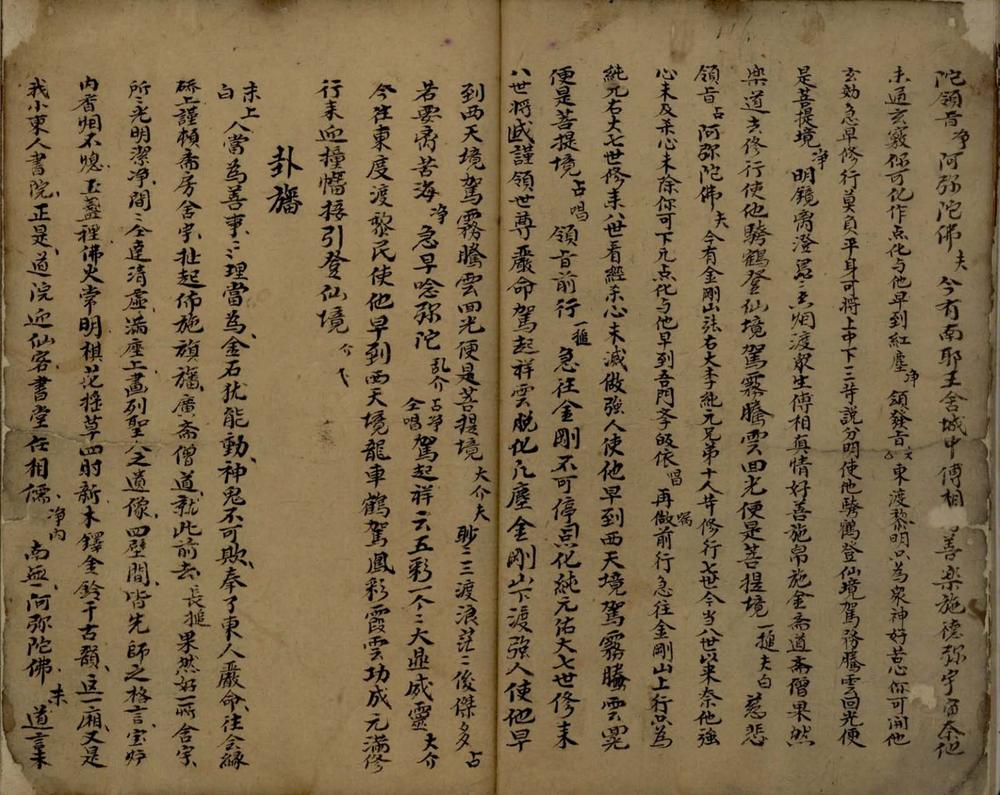 陀領旨淨阿弥陀佛夫今有南耶王舍城中傅相善樂施德弥宇宙奈他
未通玄竅你可化作点化与他早到紅塵淨領發旨東渡黎明只為眾神好苦心你可開他
玄効急早修行莫負平身可將上中下三等説分明使他騎鶴登仙境駕霧騰雲回光便
是菩提境淨明鏡高澄晃三烟渡眾生傅相真情好善施帛施金斋道斋僧果然
樂道去修行使他騎鶴登仙境駕霧騰雲回光便是菩提境一搥夫白慈悲
領旨占阿弥陀佛夫今有金剛山法右大李純元兄弟十人廾修行七世今当八世以來奈他強
心未及未心未除你可下凡点化与他早到吾門李皈依唱再做前行急往金剛山上行只為
純元右大七世修未八世看經杀心未滅做強人使他早到西天境駕霧騰雲晃
便是菩提境占唱領旨前行一搥急往金剛不可停点化純元佑大七世修未
八世将感謹領世尊嚴命駕起祥雲脱化凡塵金剛山下渡強人使他早
到西天境駕霧騰雲回光便是菩提境大介夫眇三三渡浪茫二俊傑多占
若要离苦海淨急早唸弥陀乱介占淨仝唱駕起祥云五彩一个二大显威靈大介
今往東度渡黎民使他早到西天境龍車鶴駕鳳彩霞雲功成元滿修
行未迎撞幡接引登仙境介
卦旛
末上白人當為善事三理當為金石犹能動神鬼不可欺奉了東人嚴命往会緣
硚上謹頼斋房舍字扯起佈施旗旛廣斋僧道就此前去長搥果然好一所舍字
所三光明潔淨間三仝達清虛滿座上畫列聖公之道像四壁間皆先師之格言宝炉
内香烟不熄玉盞裡佛火常明棋花搖草四时新木鐸金鈴千古韻这一廂又是
我小東人書院正是道院迎仙客書堂在相儒淨内南無阿弥陀佛末道言未